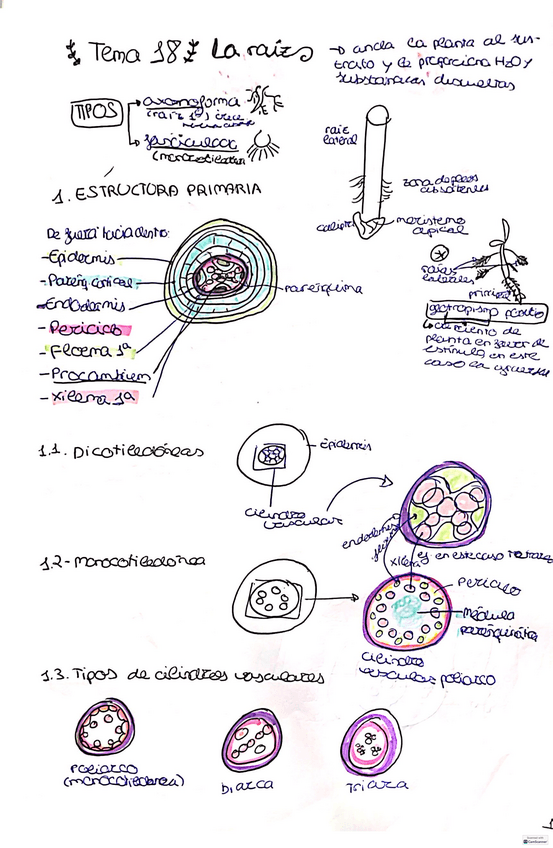 Tema 18 La raíz → ancla la planta al sus-
trato y le proporciona H2O y
substancias disueltas
TIPOS
axonoforma
(raiz 1ª) crece
fasciculada
(monocotiledon
raiz
lateral
zona de pelos
absorbentes
caliptra
meristemo
apical
1. ESTRUCTURA PRIMARIA
De fuera hacia dentro:
-Epidermis
-Parénq cortical
-Endodermis
-Periciclo
-Floema 1ª
-Procambium
-Xilema 1ª
parénquima
raíces
laterales
primaria
geotropismo positivo
↳ crecimiento de
planta en favor de
estímulo en este
caso la gravedad
1.1. Dicotiledóneas
Epidermis
cilindro
vascular
endodermis
floema
xilema
es en este caso tetrarca
1.2- monocotiledónea
Periciclo
Médula
parénquimática
cilindro
vascular poliarco
1.3. Tipos de cilindros vasculares
poliarco
(monocotiledonea)
biarca
Triarca
1
CamScanner